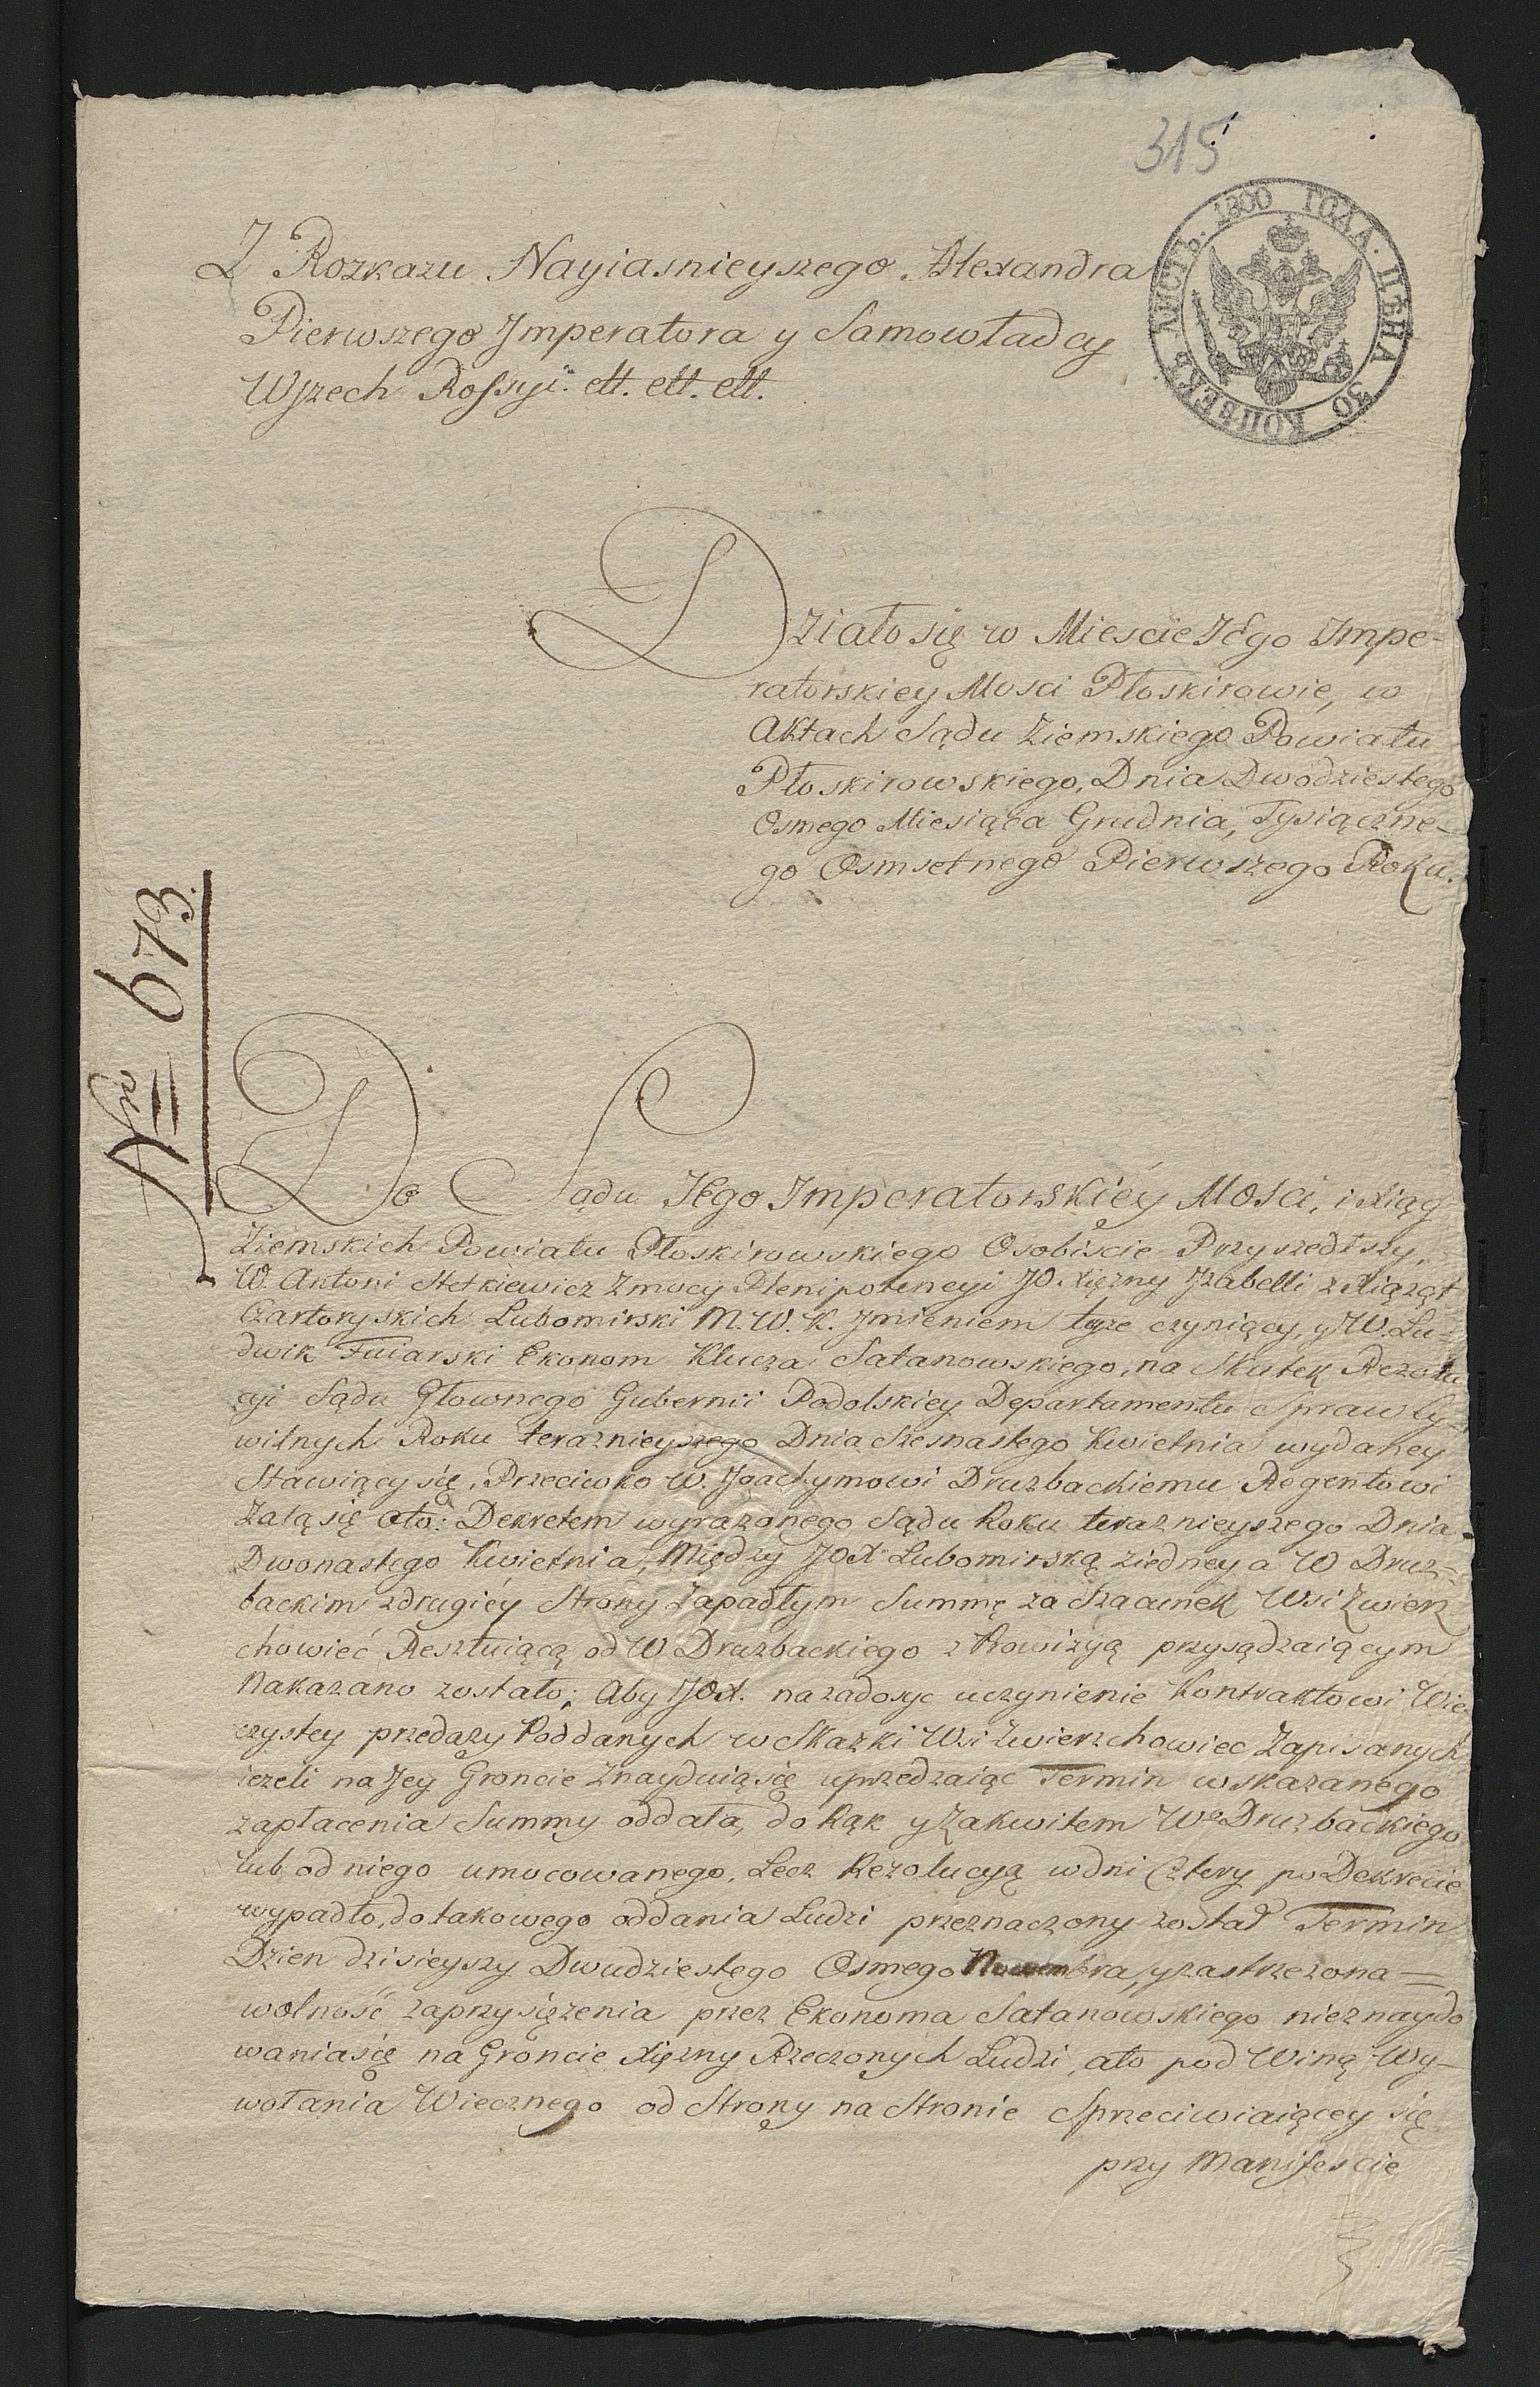 315
ЛИСТЪ. 1800 ГОДА. ЦѢНА 30 КОПѢЕКЪ
Z Rozkazu Nayiasnieyszego Alexandra
Pierwszego Imperatora y Samowładcy
Wszech Rossyi ett. ett. ett.
Działo się w Miescie JEgo Impe-
ratorskiey Mosci Płoskirowie, w
Aktach Sądu Ziemskiego Powiatu
Płoskirowskiego, Dnia Dwodziestego
Osmego Miesiąca Grudnia, Tysiączne-
go Osmsetnego Pierwszego Roku.
Nro 673
Do Sądu JEgo Imperatorskiéy Mosci, i Xiąg
Ziemskich Powiatu Płoskirowskiego Osobiscie Przyszedłszy,
W. Antoni Stetkiewicz z mocy Plenipotencyi JO Xiężny Jzabelli z Xiążąt
Czartoryskich Lubomirski M. W. K. Jmieniem tyże czyniący, y W. Lu-
dwik Fuiarski Ekonom Klucza Satanowskiego, na Skutek Rezolu
cyi Sądu Głownego Gubernii Podolskiey Departamentu Spraw Cy-
wilnych Roku teraznieyszego Dnia Szesnastego Kwietnia wydaney
Stawiący się, Przeciwko W. Joachymowi Druzbackiemu Regentowi
Zalą się oto: Dekretem wyrazonego Sądu Roku teraznieyszego Dnia
Dwonastego Kwietnia, Między JOX Lubomirską ziedney a W Druz-
backim zdrugiéy Strony Zapadłym Summę za Szacunek Wsi Zwierz
chowieć Resztuiącą od W Druzbackiego z Prowizyą przysądzaiącym
Nakazano zostało; Aby JOX. na zadosyc uczynienie Kontraktowi Wie
czystey przedaży Poddanych w Skazki Wsi Zwierzchowiec Zapisanych
iezeli na Jey Groncie Znayduią się uprzedzaiąc Termin wskazanego
zapłacenia Summy oddała, do Rąk y Zakwitem Wo Druzbackiego
lub od niego umocowanego, Lecz Rezolucyą w dni Cztery po Dekrecie
wypadło, do takowego oddania Ludzi przeznaczony został Termin
Dzien dzisieyszy Dwudziestego Osmego Nowembra, y zastrzezona
wolność zaprzysiężenia przez Ekonoma Satanowskiego nieznaydo
waniasię na Groncie Xiężny Rzeczonych Ludzi, ato pod Winą Wy-
wołania Wiecznego od Strony na Stronie Sprzeciwiaiącey się
przy Manifescie